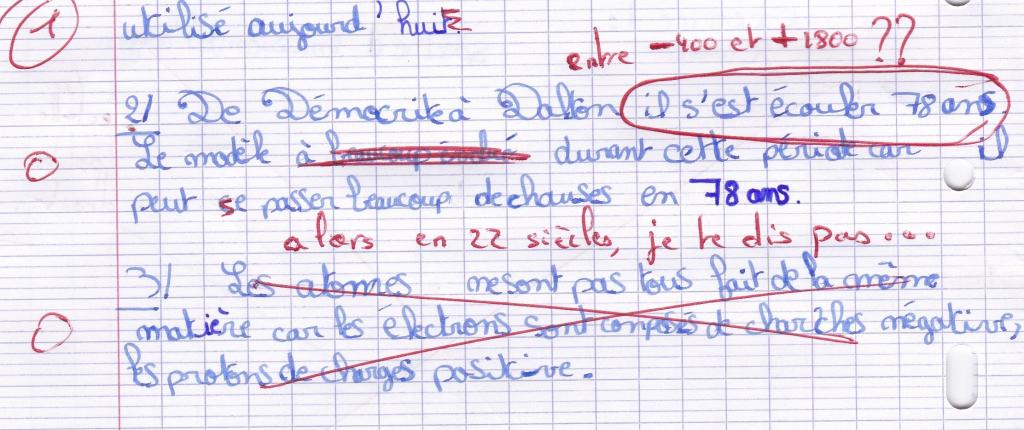 1 utilisé aujourd'huit.
entre -400 et +1800 ??
2/ De Démocrite à Dalton il s'est écouler 78 ans
0 Le modèle à durant cette périod car il
peut se passer beaucoup de chauses en 78 ans.
alors en 22 siècles, je te dis pas...
3/ Les atomes ne sont pas tous fait de la même
0 matière car les électrons sont composés de charches négative,
les protons de charges positive.